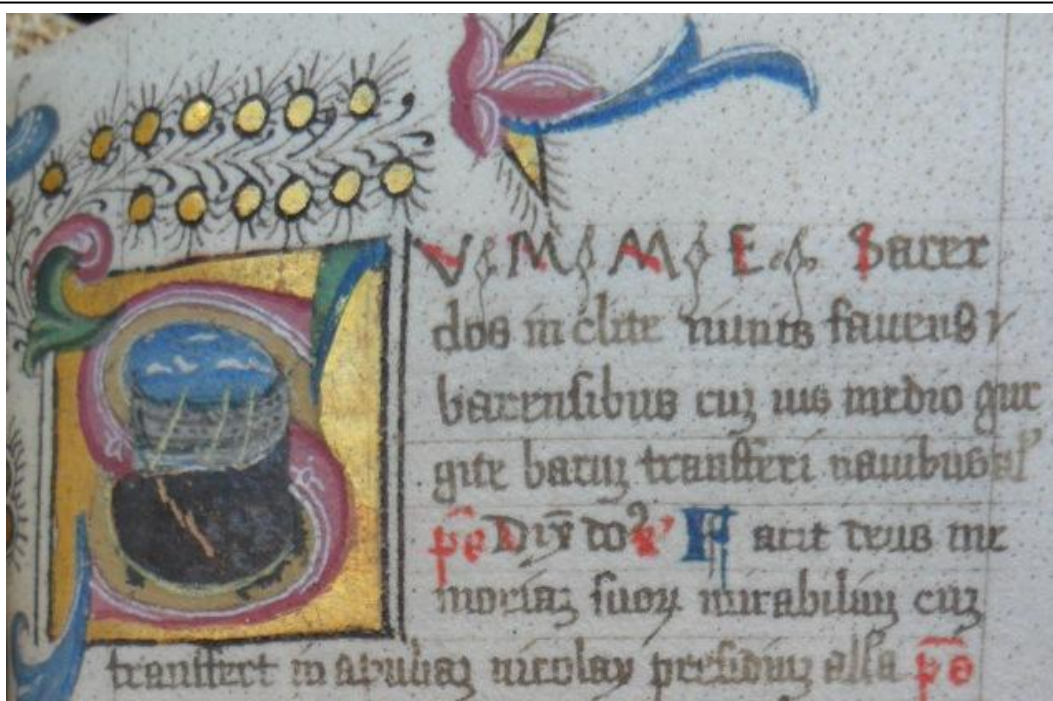 V M M E Sacer
dos in clite nimis fauens
barensibus cuz ius medio gur
gite baruz transferi nauibus
Dix do F acit deus me
moriaz suoꝝ mirabiliuz cuz
transfert in apuliaz nicolay presidiuz alla